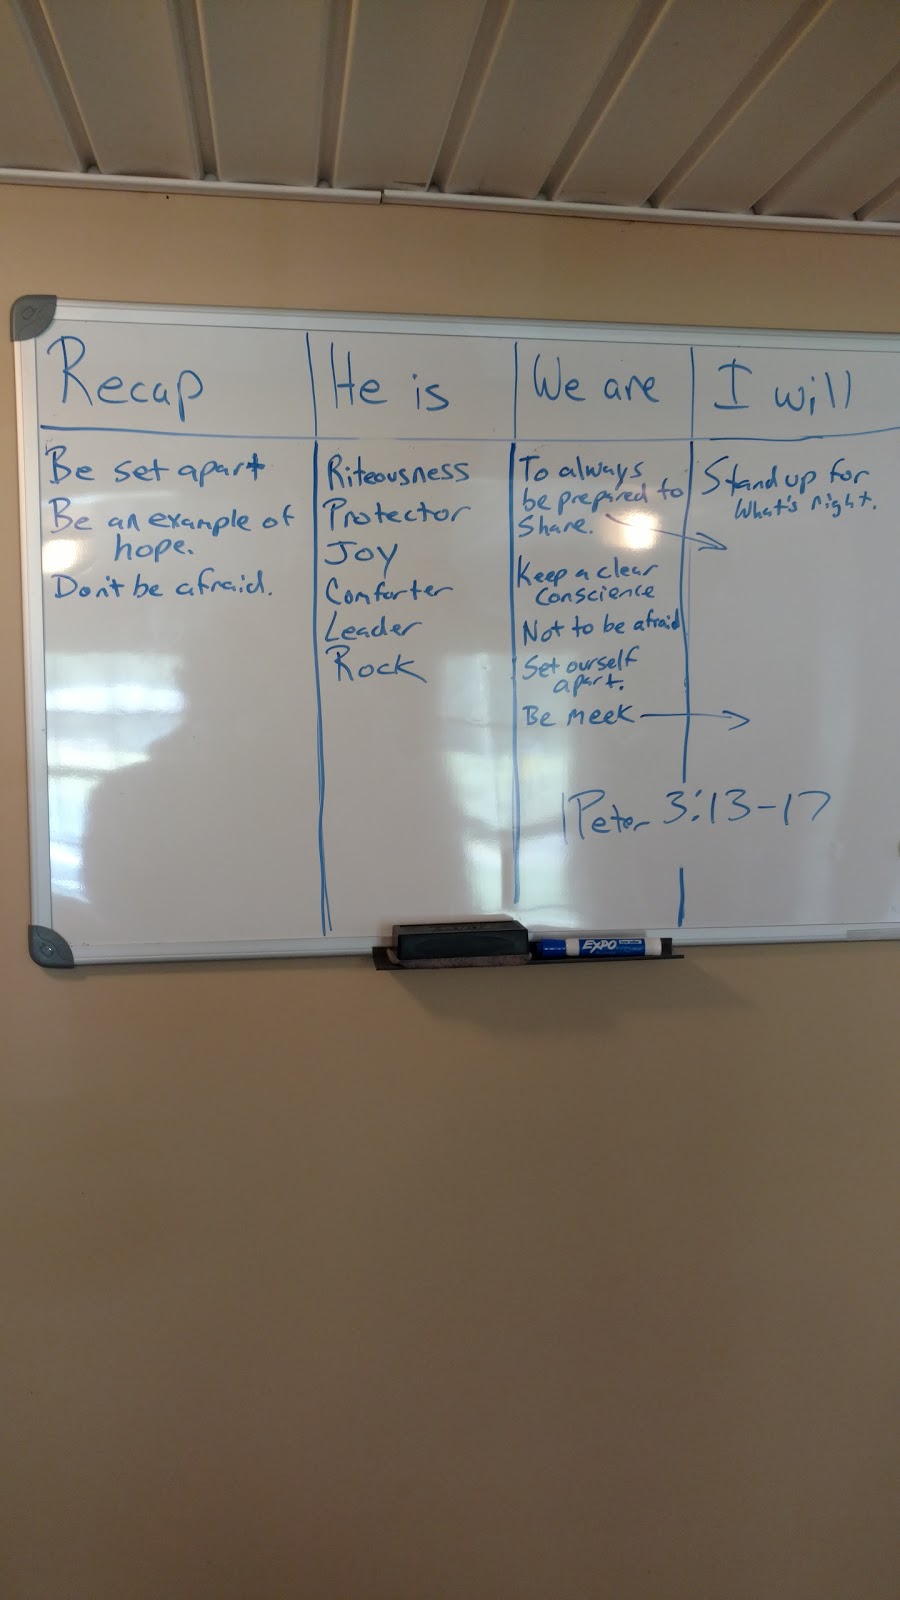 Recap
Be set apart
Be an example of
hope.
Don't be afraid.
He is
Riteousness
Protector
Joy
Comforter
Leader
Rock
We are
To always
be prepared to
share.
Keep a clear
conscience
Not to be afraid
Set ourself
apart.
Be meek
I will
Stand up for
what's right.
1 Peter 3:13-17
EXPO